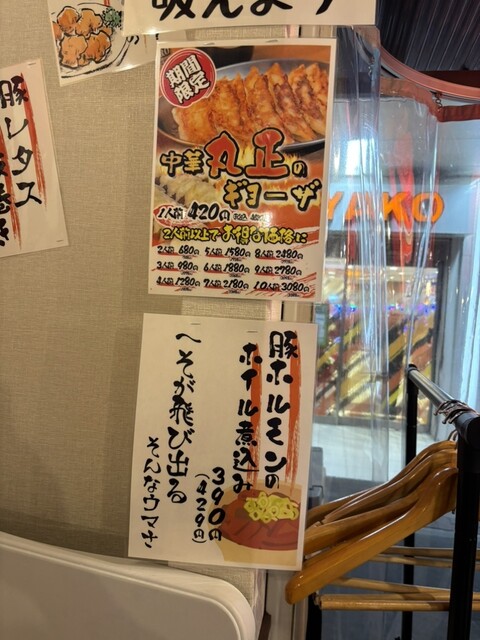 吸えます
期間
限定
中華 丸正の
ギョーザ
1人前 420円
2人前以上でお得な価格に
2人前 680円 5人前 1580円 8人前 2480円
3人前 980円 6人前 1880円 9人前 2780円
4人前 1280円 7人前 2180円 10人前 3080円
豚レタス
YAKO
豚ホルモンの
ホイル煮込み
390円
(429円)
へそが飛び出る
そんなウマさ